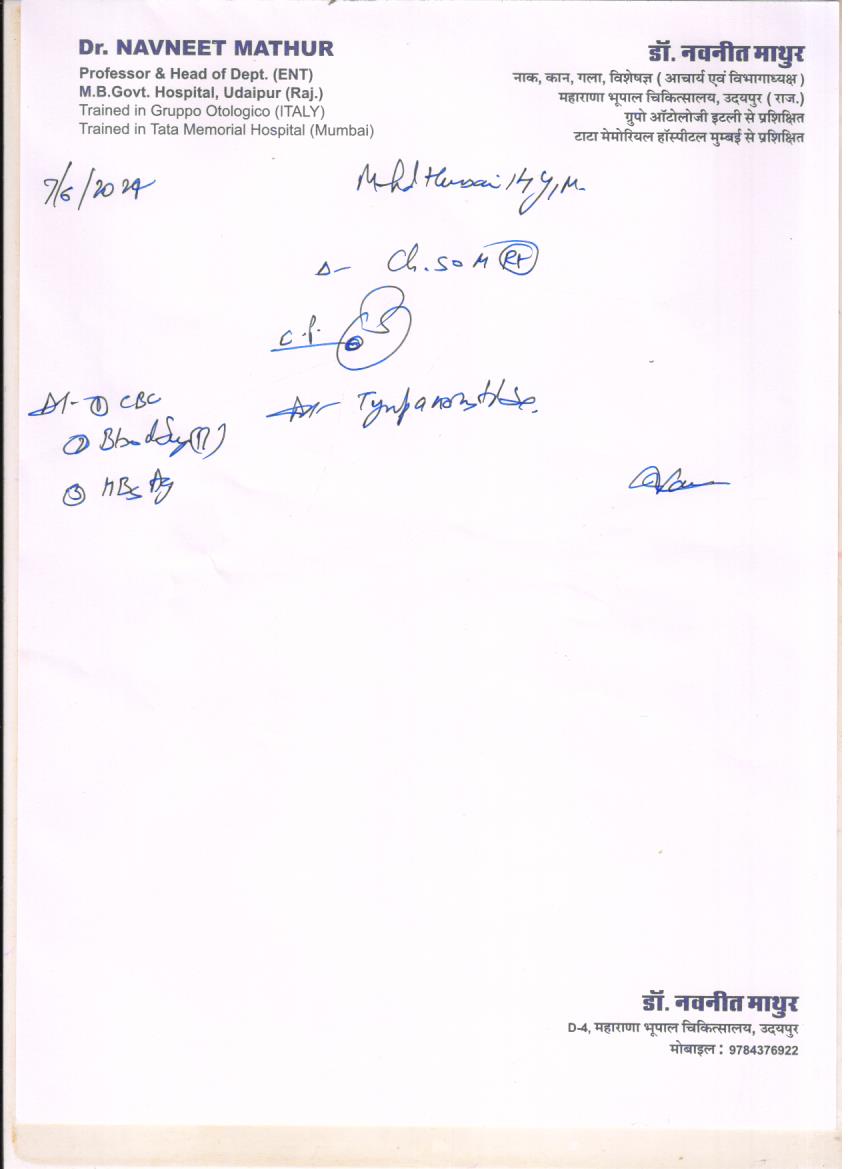 Dr. NAVNEET MATHUR
Professor & Head of Dept. (ENT)
M.B.Govt. Hospital, Udaipur (Raj.)
Trained in Gruppo Otologico (ITALY)
Trained in Tata Memorial Hospital (Mumbai)
डॉ. नवनीत माथुर
नाक, कान, गला, विशेषज्ञ ( आचार्य एवं विभागाध्यक्ष )
महाराणा भूपाल चिकित्सालय, उदयपुर ( राज.)
ग्रुपो ऑटोलोजी इटली से प्रशिक्षित
टाटा मेमोरियल हॉस्पीटल मुम्बई से प्रशिक्षित
7/6/2024
Mohd Hussai 14 y, M.
Δ- Ch. SOM Rt
① CBC
②
③ HBs Ag
डॉ. नवनीत माथुर
D-4, महाराणा भूपाल चिकित्सालय, उदयपुर
मोबाइल : 9784376922